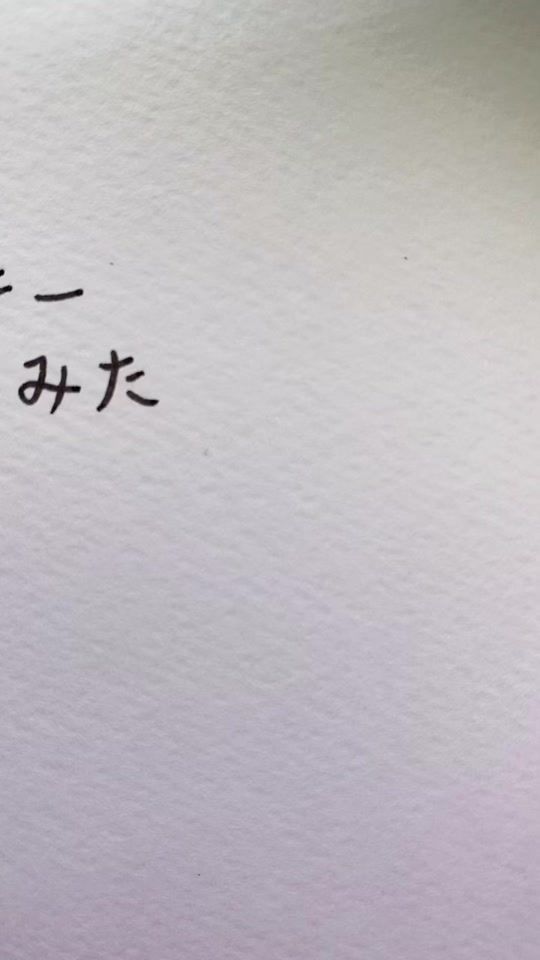 ー
みた